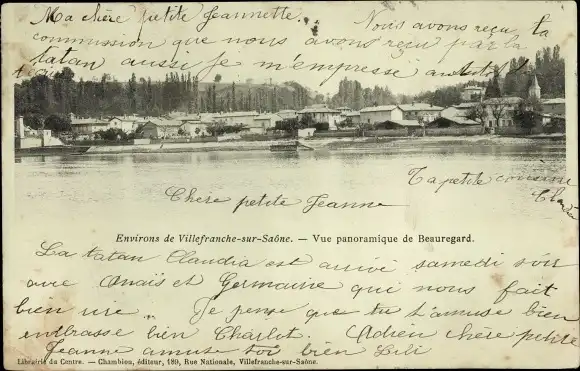 Ma chère petite Jeannette.
Nous avons reçu ta
commission que nous avons reçu par la
tatan aussi je m'empresse
Ta petite cousine
Claudia
Chère petite Jeanne
Environs de Villefranche-sur-Saône. — Vue panoramique de Beauregard.
La tatan Claudia est arrivé samedi soir
avec Anais et Germaine qui nous fait
bien rire „ Je pense que tu t'amuse bien
embrasse bien Charlot. Adieu chère petite
Jeanne amuse toi bien Lili
Librairie du Centre. — Chambion, éditeur, 189, Rue Nationale, Villefranche-sur-Saône.